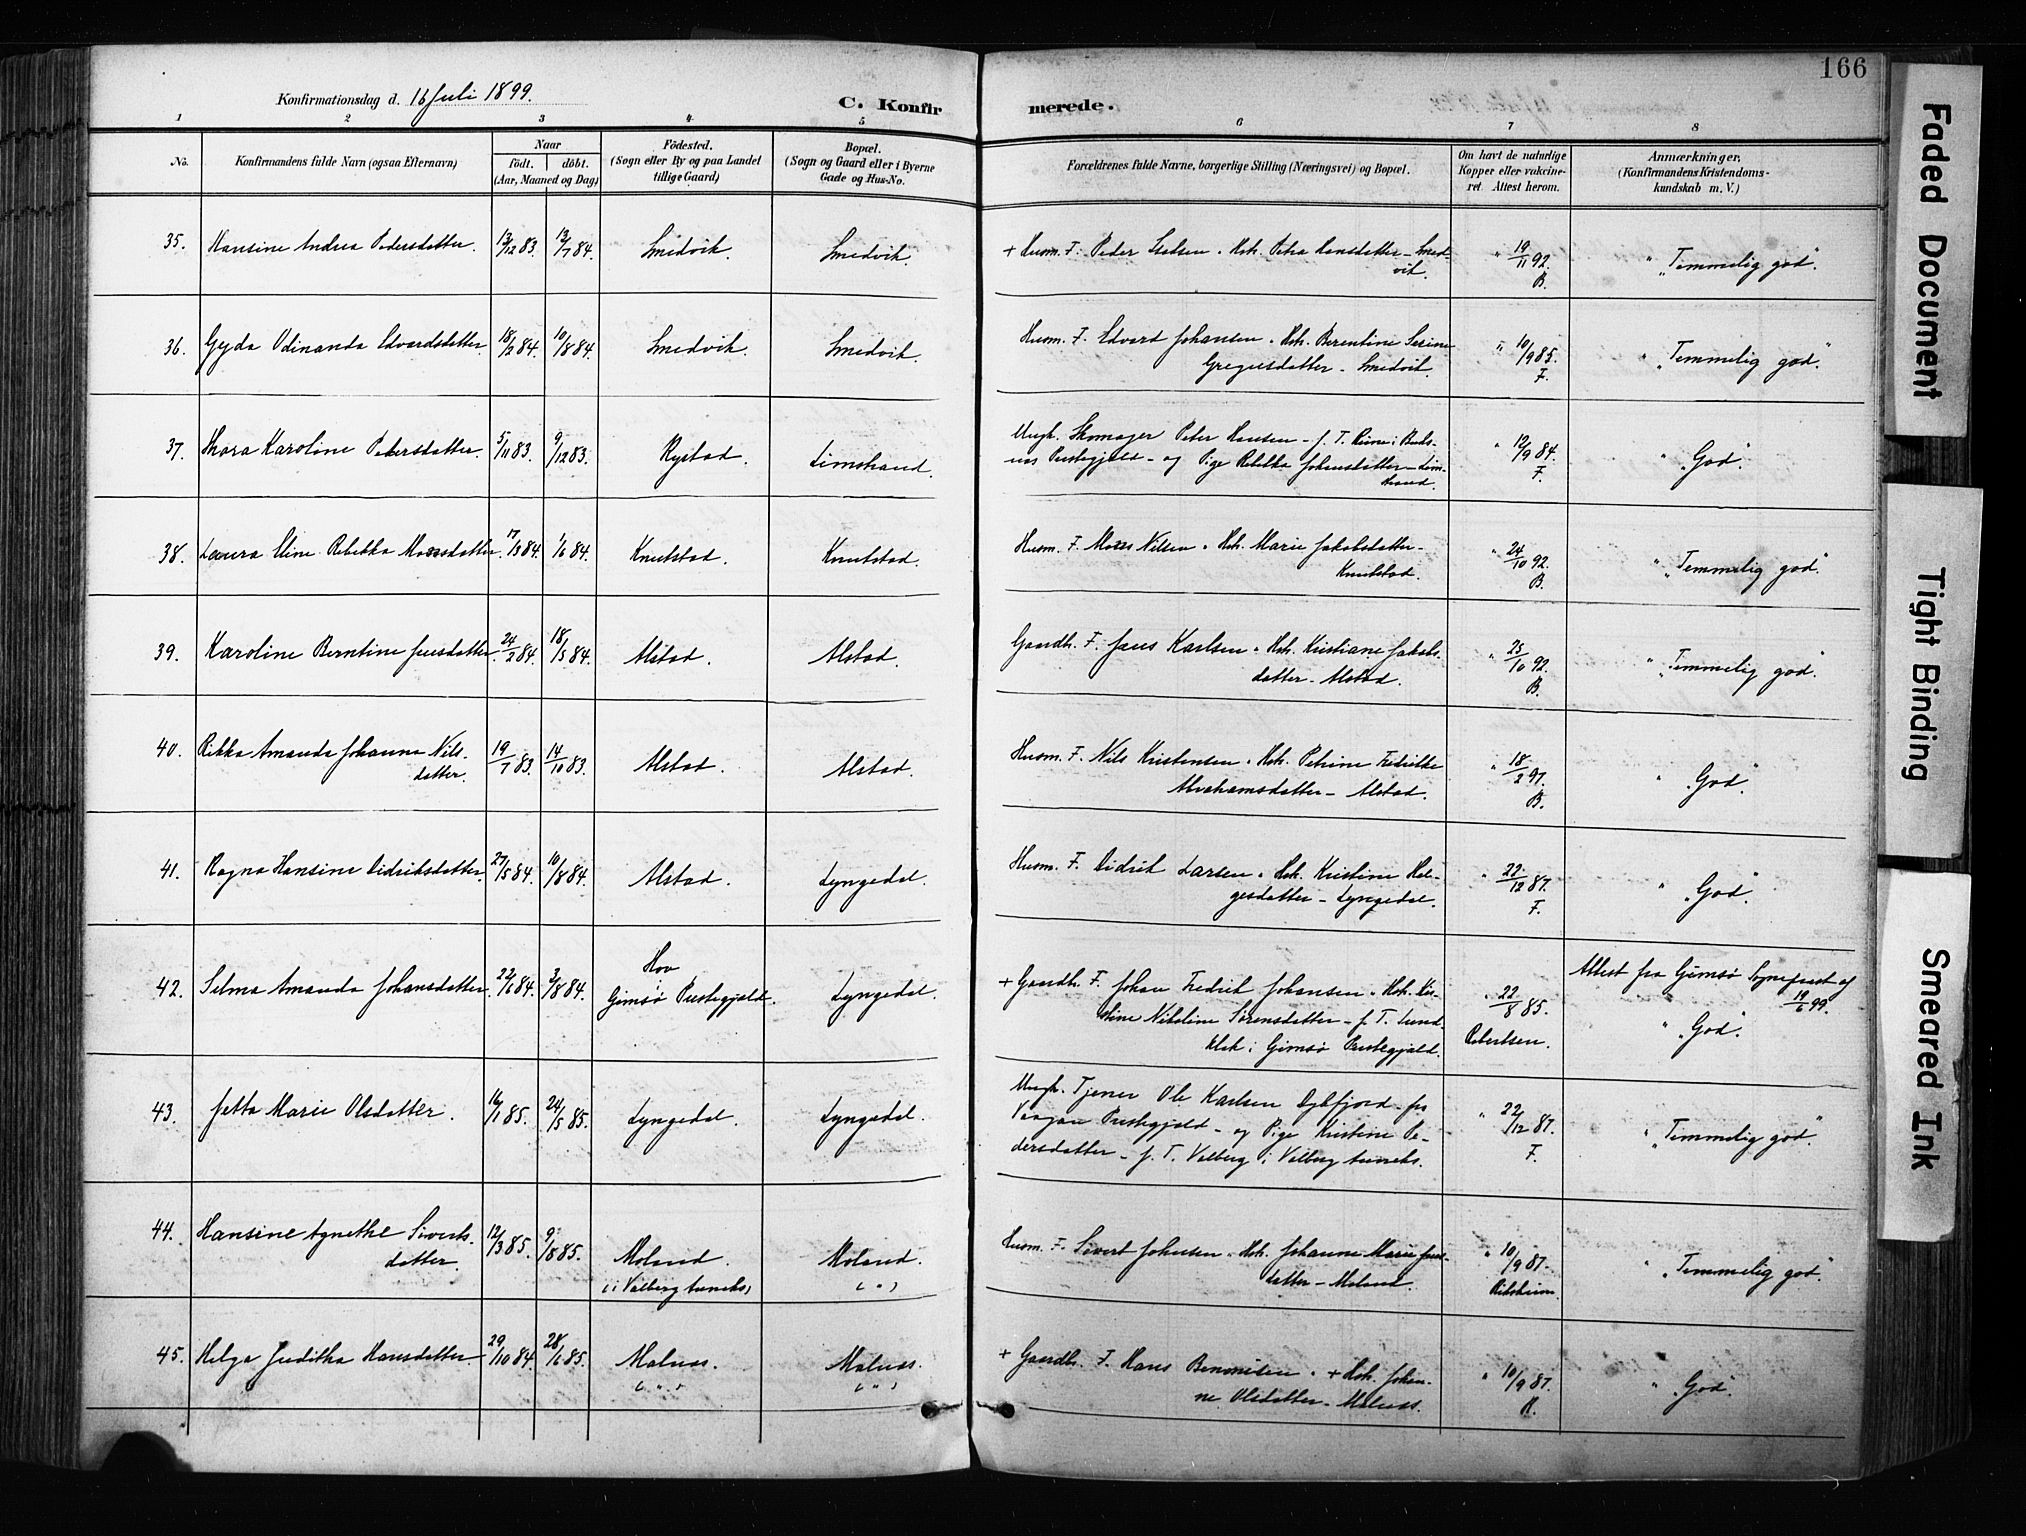 166
Konfirmationsdag d. 16 Juli 1899.
C. Konfirmerede.
1 2 3 4 5 6 7 8
No. Konfirmandens fulde Navn (ogsaa Efternavn) Naar født. døbt. (Aar, Maaned og Dag) Fødested. (Sogn eller By og paa Landet tillige Gaard) Bopæl. (Sogn og Gaard eller i Byerne Gade og Hus-No. Forældrenes fulde Navne, borgerlige Stilling (Næringsvei) og Bopæl. Om havt de naturlige Kopper eller vakcineret. Attest herom. Anmærkninger. (Konfirmandens Kristendomskundskab m. V.)
35. Hansine Andrea Pedersdatter. 13/12 83. 13/7 84. Smedvik. Smedvik. + Husm. F. Peder Hst. Petra Hansdatter – Smedvik. " 19/11 92. B. " „Temmelig god".
36. Gyda Odinanda Edvardsdatter. 18/2 84. 10/8 84. Smedvik. Smedvik. Husm. F. Edvard Johansen. Hst. Berentine Serine
Gregusdatter – Smedvik. " 10/9 85. F. " „Temmelig god".
37. Thora Karoline Petersdatter. 5/11 83. 9/12 83. Rystad. Limstrand. Ungk. Skomager Peter Hansen – f. T. Reine i Buksnes
Prestegjeld – og Pige Rebekka Johansdatter – Limstrand. " 12/9 84. F. " „God".
38. Laura Eline Rebekka Mossesdatter. 17/3 84. 1/6 84. Knutstad. Knutstad. Husm. F. Moses Nilsen. Hst. Marie Jakobsdatter –
Knutstad. " 24/10 92. B. " „Temmelig god".
39. Karoline Berntine Jensdatter. 24/2 84. 18/5 84. Alstad. Alstad. Gaardb. F. Jens Karlsen. Hst. Kristiane Jakobsdatter – Alstad. " 25/10 92. B. " „Temmelig god".
40. Rikka Amanda Johanna Nilsdatter. 19/7 83. 14/10 83. Alstad. Alstad. Husm. F. Nils Kristensen. Hst. Petrine Fredrikke
Abrahamsdatter – Alstad. " 18/2 97. B. " „God".
41. Ragna Hansine Didriksdatter. 27/5 84. 10/8 84. Alstad. Lyngedal. Husm. F. Didrik Larsen. Hst. Kristine Helgesdatter – Lyngedal. " 22/12 87. F. " „God".
42. Selma Amanda Johansdatter. 22/6 84. 3/8 84. Hov
Gimsø Prestegjeld. Lyngedal. + Gaardb. F. Johan Fredrik Johansen. Hst. Kristine Nikoline Sørensdatter – f. T.
i Gimsø Prestegjeld. " 22/8 85. Robertsen. Attest fra Gimsø Sogneprest af
19/6 99.
" „God".
43. Jetta Marie Olsdatter. 16/1 85. 24/5 85. Lyngedal. Lyngedal. Ungk. Tjener Ole Karlsen Dybfjord – fra
Vaagan Prestegjeld – og Pige Kristine Pedersdatter – f. T. Valberg i Valberg Anneks. " 22/12 87. F. " „Temmelig god".
44. Hansine Agnethe Sivertsdatter. 12/3 85. 9/8 85. Moland.
(i Valberg Anneks) Moland.
( " ) Husm. F. Sivert Johnsen. Hst. Johanna Marie Jensdatter – Moland. " 10/9 87. " „Temmelig god".
45. Helga Juditha Hansdatter. 29/10 84. 28/6 85. Malnes.
( " ) Malnes.
( " ) + Gaardb. F. Hans Benonisen. + Hst. Johanne Olsdatter – Malnes. " 10/9 87. R. " „God".
Faded Document
Tight Binding
Smeared Ink